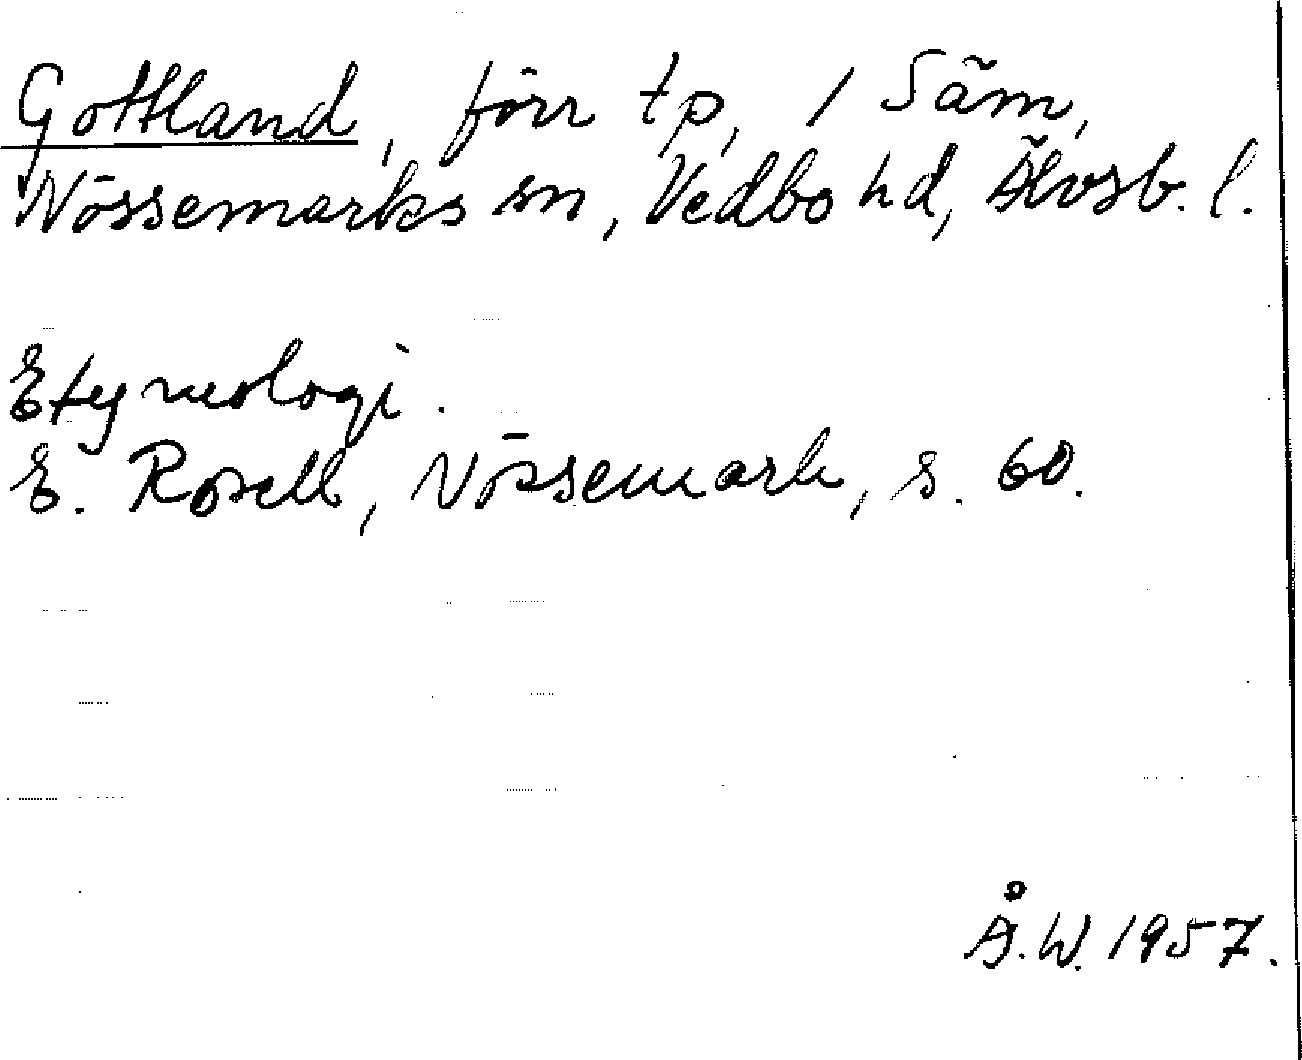 Gottland, förr tp, 1 Säm,
Nössemarks sn, Vedbo hd, Älvsb. l.
Etymologi.
E. Rosell, Nössemark, s. 60.
Å.W. 1957.